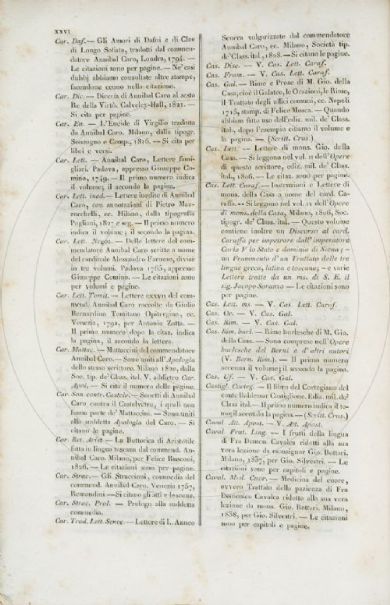 XXVI
Car. Daf. — Gli Amori di Dafni e di Cloe
di Longo Sofista, tradotti dal commen-
datore Annibal Caro, Londra,
Le citazioni sono per pagine. — Ne' casi
dubbj abbiamo consultate altre stampe,
facendone cenno nella citazione.
Car. Dic. — Diceria di Annibal Caro al sesto
Re della Virtù. Calveley-Hall, 1821. —
Si cita per pagine.
Car. En. — L'Eneide di Virgilio tradotta
da Annibal Caro. Milano, dalla tipogr.
Sonzogno e Comp., 1826. — Si cita per
libri e versi.
Car. Lett. — Annibal Caro, Lettere fami-
gliari. Padova, appresso Giuseppe Co-
mino, 1749. — Il primo numero indica
il volume, il secondo la pagina.
Car. Lett. ined. — Lettere inedite di Annibal
Caro, con annotazioni di Pietro Maz-
zucchelli, ec. Milano, dalla tipografia
Pogliani, 1827 e seg. — Il primo numero
indica il volume; il secondo la pagina.
Car. Lett. Negoz. — Delle Lettere del com-
mendatore Annibal Caro scritte a nome
del cardinale Alessandro Farnese, divise
in tre volumi. Padova 1765, appresso
Giuseppe Comino. — Le citazioni sono
per volumi e pagine.
Car. Lett. Tomit. — Lettere del com-
mend. Annibal Caro raccolte da Giulio
Bernardino Tomitano Opitergino, ec.
Venezia, 1791, per Antonio Zatta. —
Il primo numero dopo la citaz. indica
la pagina, il secondo la lettera.
Car. Mattac. — Mattaccini del commendatore
Annibal Caro. — Sono uniti all'Apologia
dello stesso scrittore. Milano 1820, dalla
Soc. tip. de' Class. ital. V. addietro Car.
Apol. — Si cita il numero delle pagine.
Car. Son. contr. Castelv. — Sonetti di Annibal
Caro contra il Castelvetro, i quali non
fanno parte de' Mattaccini. — Sono uniti
alla suddetta Apologia del Caro. — Si
citano le pagine.
Car. Ret. Arist. — La Rettorica di Aristotile
fatta in lingua toscana dal commend. An-
nibal Caro. Milano, per Felice Rusconi,
1826. — Le citazioni sono per pagine.
Car. Strac. — Gli Straccioni, commedia del
commend. Annibal Caro. Venezia 1757,
Remondini — Si citano gli atti e le scene.
Car. Strac. Prol. — Prologo alla suddetta
commedia.
Car. Trad. Lett. Senec. — Lettere di L. Anneo
Seneca volgarizzate dal commendatore
Annibal Caro, ec. Milano, Società tip.
de' Class. ital., 1828. — Si citano le pagine.
Cas. Disc. — V. Cas. Lett. Caraf.
Cas. Fram. — V. Cas. Lett. Caraf.
Cas. Gal. — Rime e Prose di M. Gio. della
Casa; cioè il Galateo, le Orazioni, le Rime,
il Trattato degli uffici comuni, ec. Napoli
stamp. di Felice Mosca. — Quando
abbiam fatto uso dell'ediz. mil. de' Class.
ital., dopo l'esempio citiamo il volume e
la pagina. — (Scritt. Crus.)
Cas. Lett. — Lettere di mons. Gio. della
Casa. — Si leggono nel vol. II dell'Opere
di questo scrittore, ediz. mil. de' Class.
ital., 1806. — Le citaz. sono per pagine.
Cas. Lett. Caraf. — Instruzioni e Lettere di
mons. della Casa a nome del card. Ca-
raffa. — Si leggono nel vol. dell'Opere
di mons. della Casa, Milano, 1806, Soc.
tipogr. de' Class. ital. — Questo volume
contiene inoltre un Discorso al card.
Caraffa per impetrare dall'imperatore
Carlo V lo Stato e dominio di Siena; —
un Frammento d'un Trattato delle tre
lingue greca, latina e toscana; — e varie
Lettere tratte da un ms. di S. E. il
sig. Jacopo Soranzo — Le citazioni sono
per pagine.
Cas. Lett. ms. — V. Cas. Lett. Caraf.
Cas. Or. — V. Cas. Gal.
Cas. Rim. — V. Cas. Gal.
Cas. Rim. burl. — Rime burlesche di M. Gio.
della Casa. — Sono comprese nell'Opere
burlesche del Berni e d'altri autori
(V. Bern. Rim.). — Il primo numero
accenna il volume; il secondo la pagina.
Cas. Uf. — V. Cas. Gal.
Castigl. Corteg. — Il libro del Cortegiano del
conte Baldessar Castiglione. Ediz. mil. de'
Class. ital. — Il primo numero indica il to-
mo; gli accenti la pagina. — (Scritt. Crus.)
Caval. Att. Apost. — V. Att. Apost.
Caval. Frut. Ling. — I frutti della lingua
di Fra Domenico Cavalca ridotti alla sua
vera lezione da monsignor Gio. Bottari.
Milano, 1837, per Gio. Silvestri. — Le
citazioni sono per capitoli e pagine.
Caval. Med. Cuor. — Medicina del cuore,
ovvero Trattato della pazienza di Fra
Domenico Cavalca ridotto alla sua vera
lezione da mons. Gio. Bottari. Milano,
1838, per Gio. Silvestri. — Le citazioni
son per capitoli e pagine.